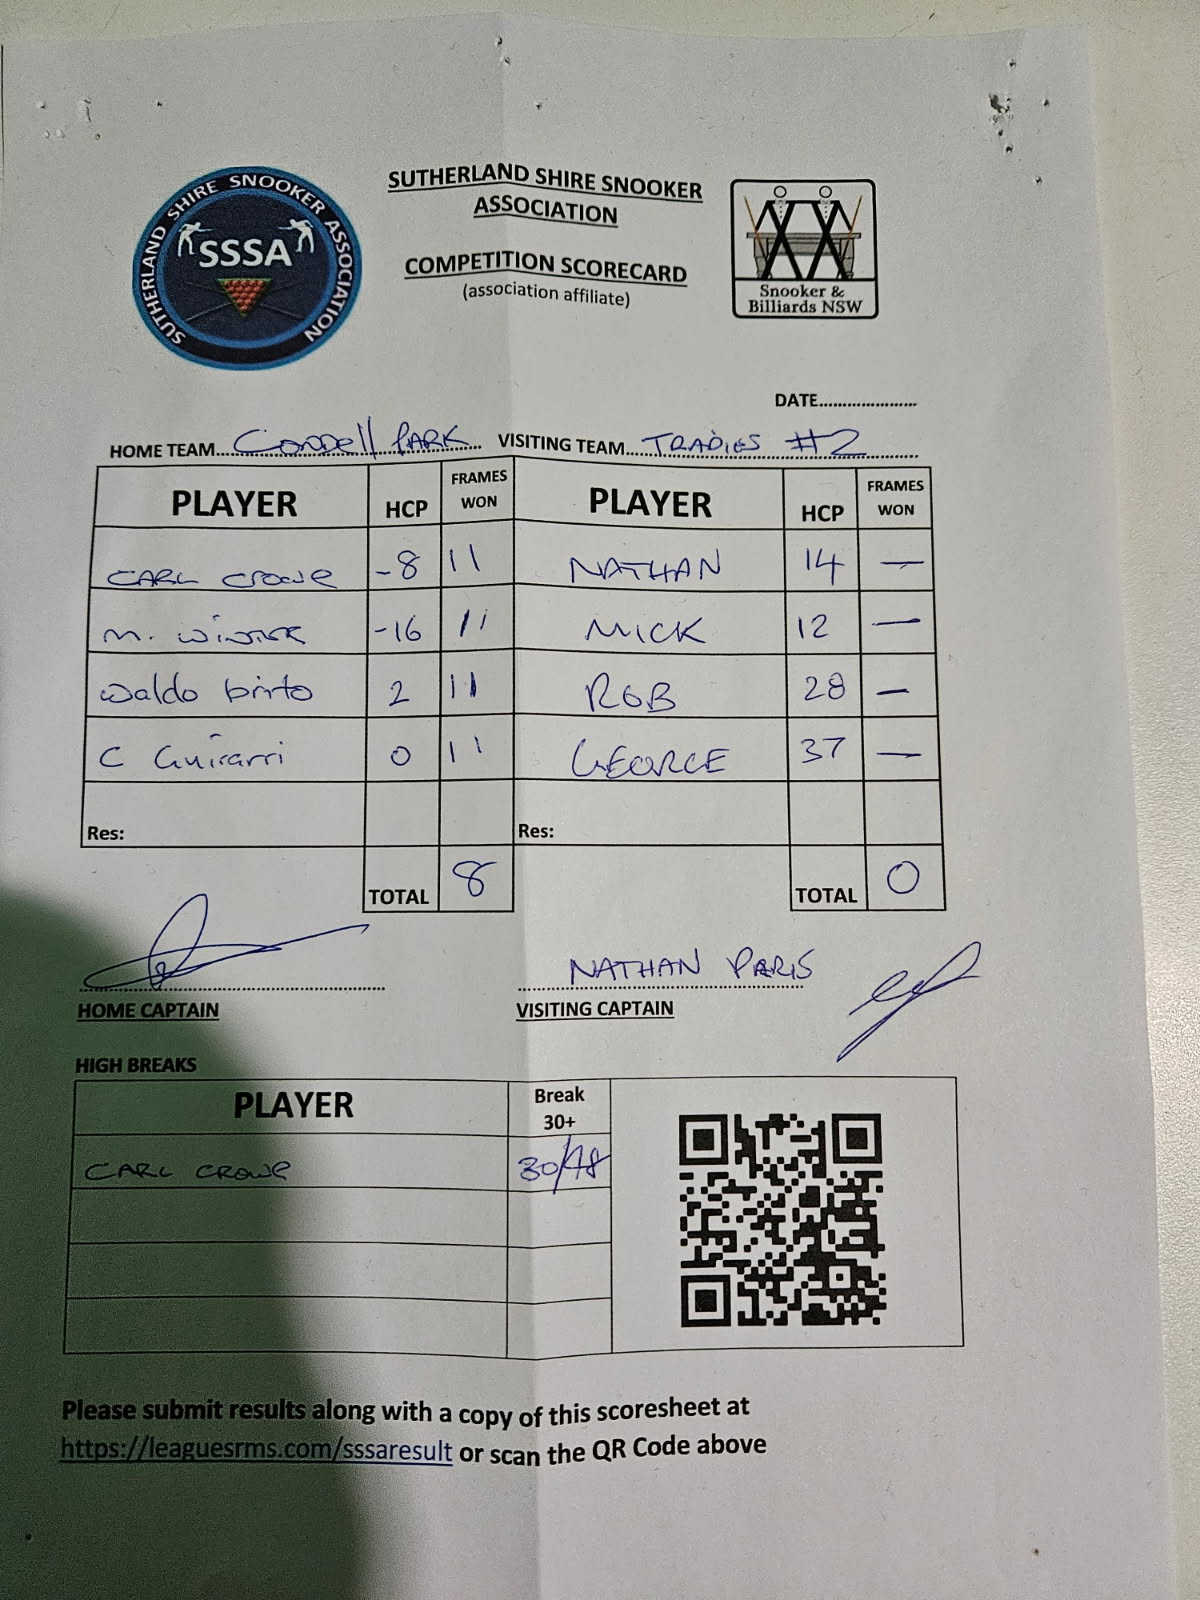 SUTHERLAND SHIRE SNOOKER ASSOCIATION
SSSA
SUTHERLAND SHIRE SNOOKER
ASSOCIATION
COMPETITION SCORECARD
(association affiliate)
Snooker &
Billiards NSW
DATE.....................
HOME TEAM... Condell PARK... VISITING TEAM... TRADIES #2
PLAYER HCP FRAMES WON PLAYER HCP FRAMES WON
CARL CROWE -8 11 NATHAN 14 —
M. -16 11 MICK 12 —
Waldo birto 2 11 ROB 28 —
C 0 11 GEORGE 37 —
Res: Res:
TOTAL 8 TOTAL 0
NATHAN PARIS
HOME CAPTAIN VISITING CAPTAIN
HIGH BREAKS
PLAYER Break 30+
CARL CROWE 30/48
Please submit results along with a copy of this scoresheet at
https://leaguesrms.com/sssaresult or scan the QR Code above